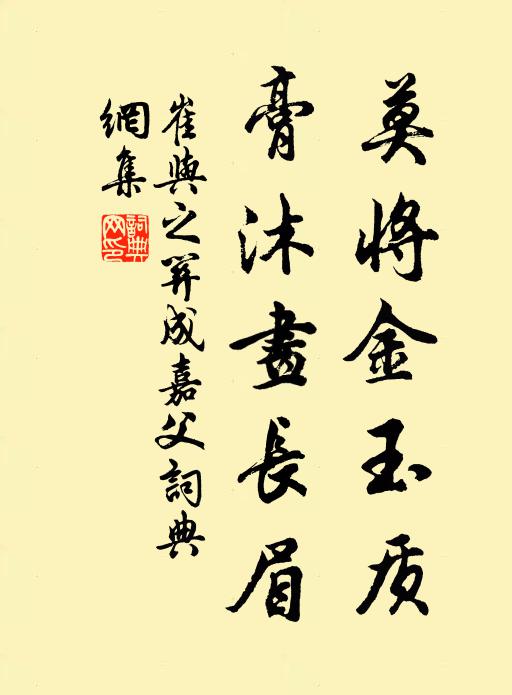 莫將金玉质
膏沐畫長眉
崔與之笄成嘉父詞典
網集
詞典
网印